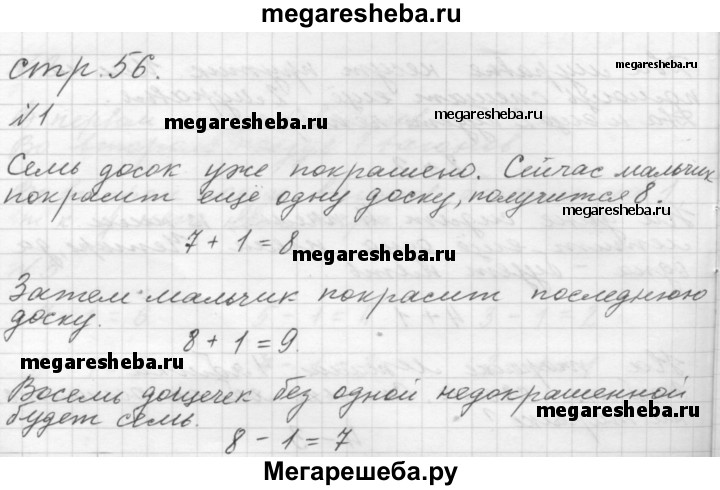 megaresheba.ru
стр. 56.
megaresheba.ru
№1
megaresheba.ru
Семь досок уже покрашено. Сейчас мальчик
покрасит ещё одну доску, получится 8.
megaresheba.ru
7 + 1 = 8
megaresheba.ru
Затем мальчик покрасит последнюю
доску.
8 + 1 = 9.
megaresheba.ru
Восемь дощечек без одной недокрашенной
будет семь.
megaresheba.ru
8 - 1 = 7
Мегарешеба.ру